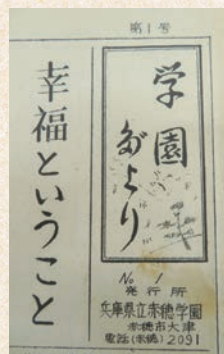 第1号
学園
だより
No 1
発行所
兵庫県立赤穂学園
赤穂市大津
電話(赤穂)2091
幸福ということ